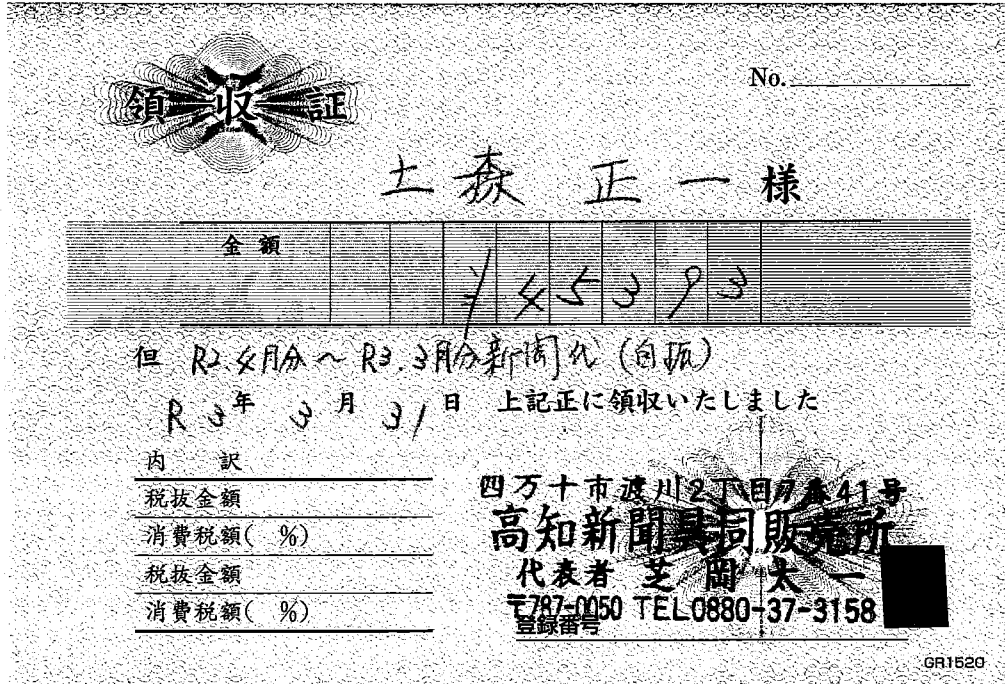 領収証
No.
土森 正一 様
金額 ¥45393
但 R2.4月分～R3.3月分新聞代(自振)
R3年 3月 31日 上記正に領収いたしました
内 訳
税抜金額
消費税額( %)
税抜金額
消費税額( %)
四万十市渡川2丁目7番41号
高知新聞具同販売所
代表者 芝岡太一
〒787-0050 TEL0880-37-3158
登録番号
GR1520